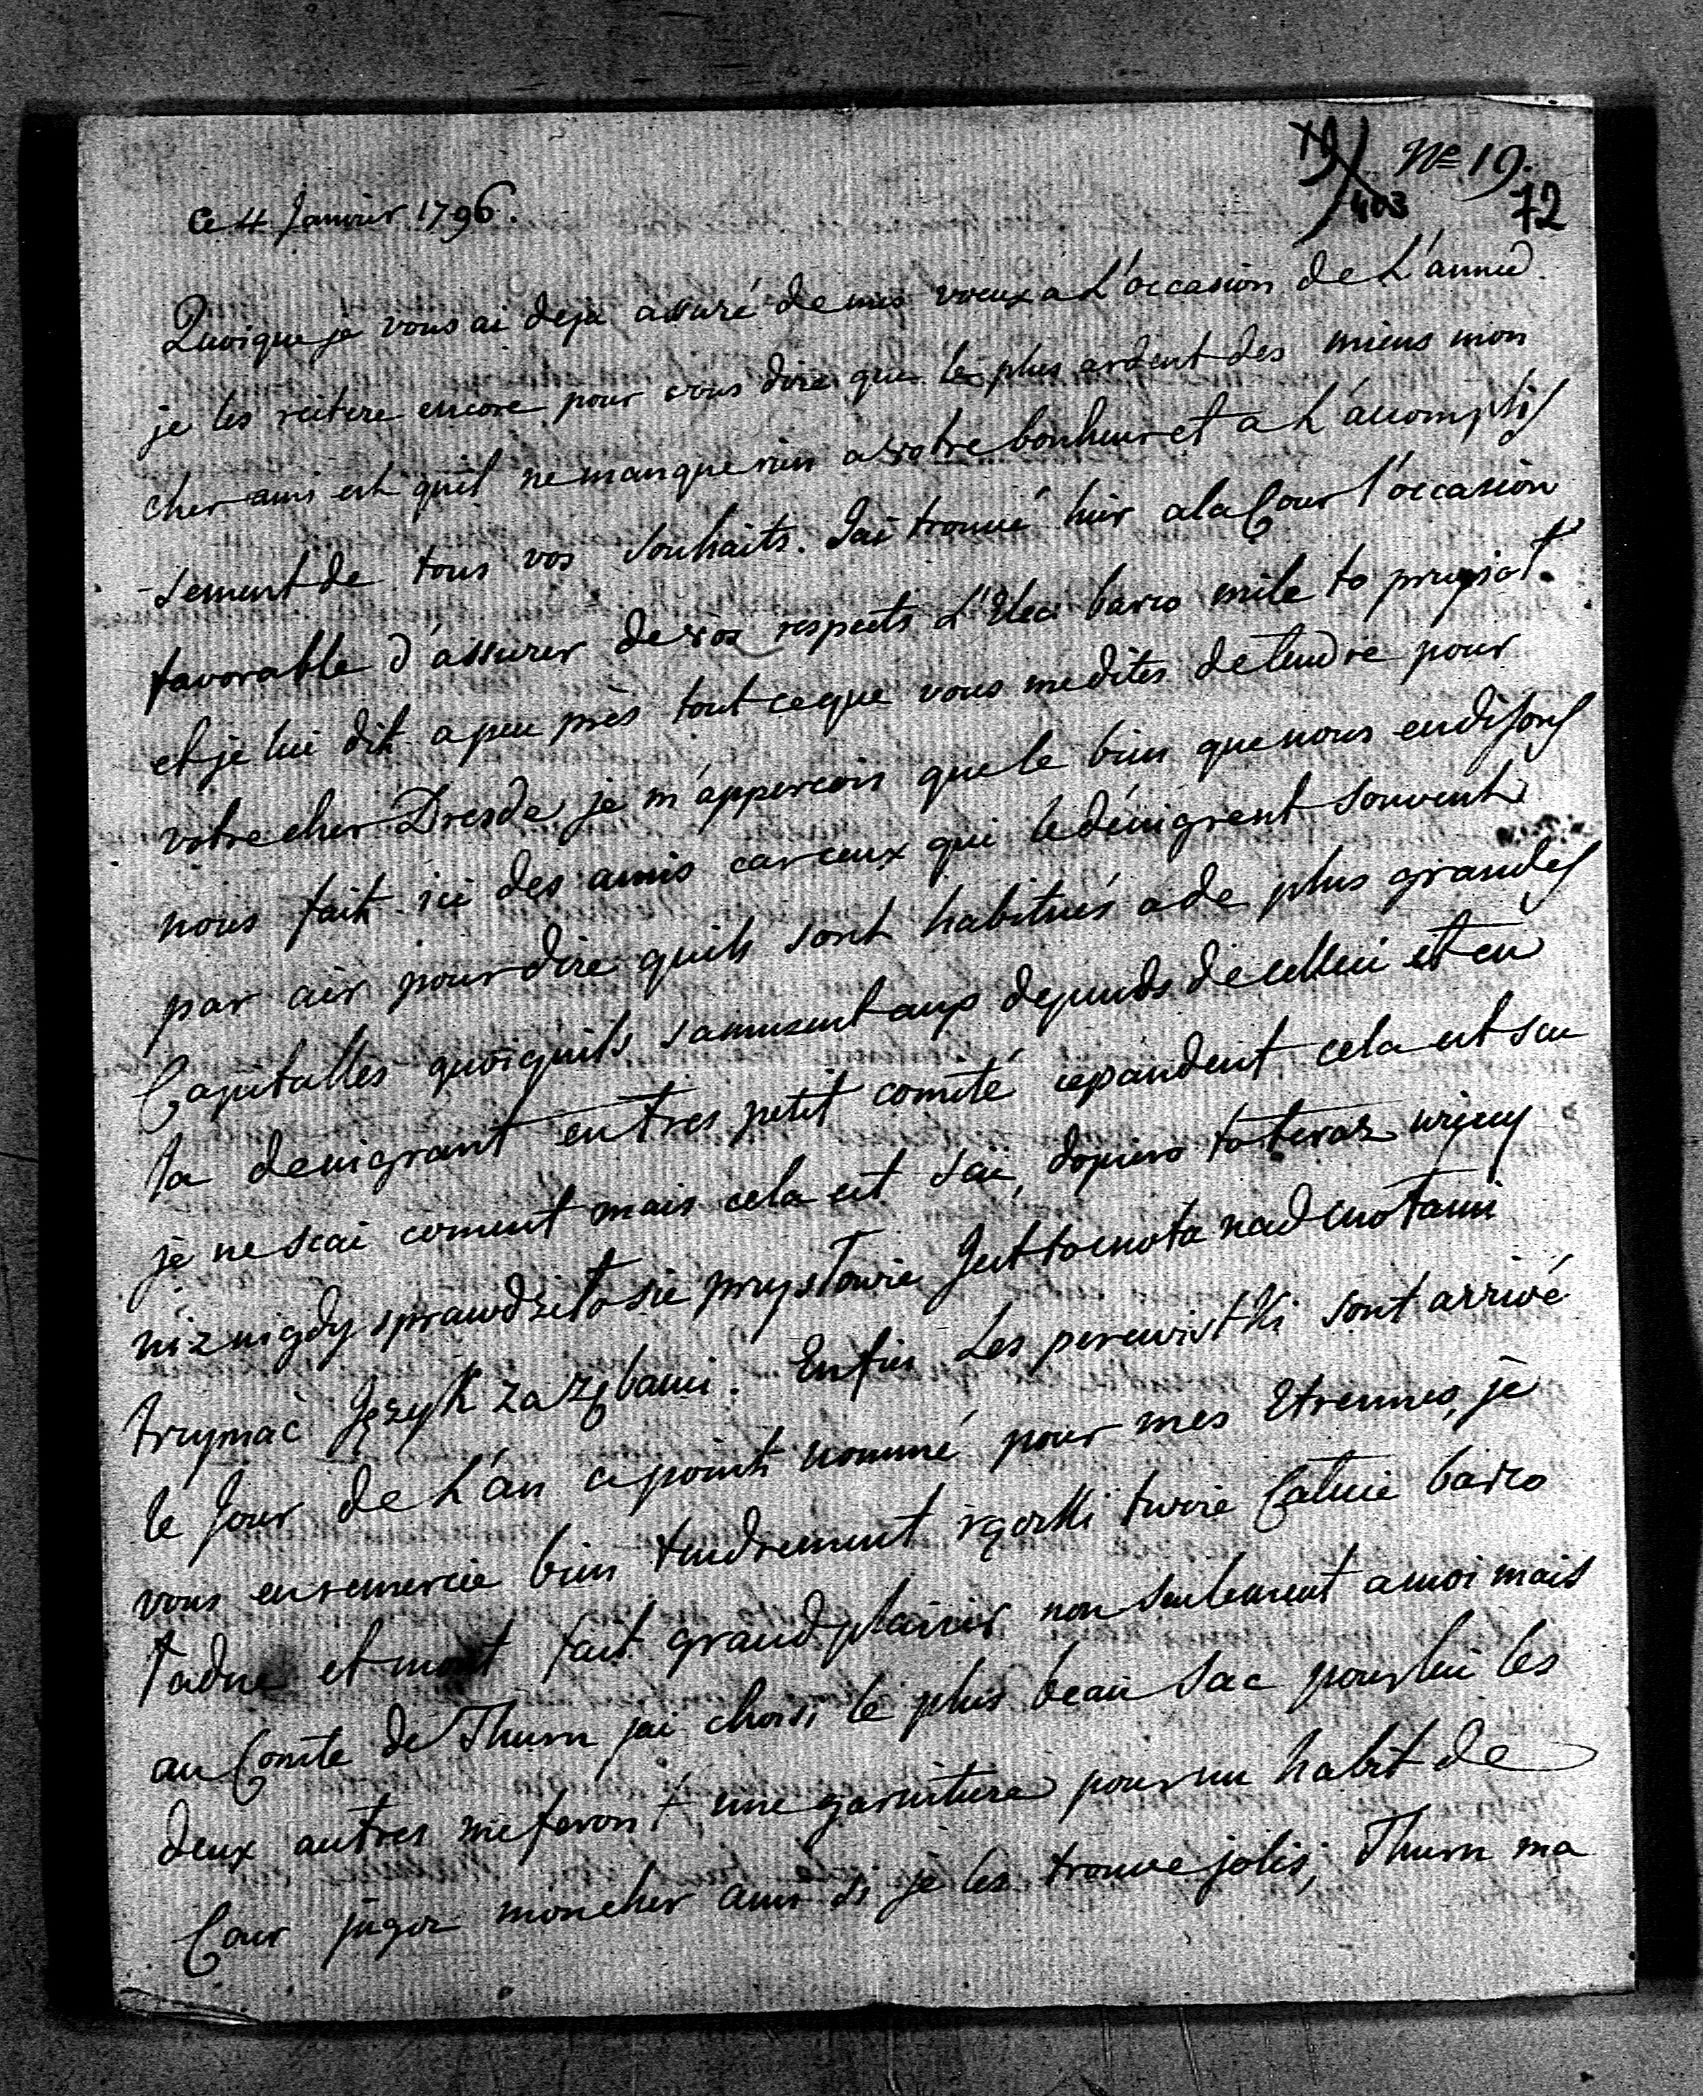 19/403
Nº 19.
72
Ce 4 Janvier 1796.
Quoique je vous ai deja assuré de mes voeux a L'occasion de L'année
je les reitere encore pour vous dire que le plus ardent des miens mon
cher ami est quil ne manque rien a votre bonheur et a L'accomplis
-sement de tous vos souhaits. Jai trouvé hier a la Cour l'occasion
favorable d'assurer de vos respects L'Elec: barzo mile to przyiot.
et je lui dit a peu près tout ceque vous me dites de tendre pour
votre cher Dresde, je m'appercois que le bien que nous en disons
nous fait ici des amis car ceux qui le dénigrent souvent
par air pour dire quils sont habitués a de plus grandes
Capitalles quoiquils samusent aux depends de cellui et en
la denigrant en tres petit comité cepandent cela est scu
je ne scai coment mais cela est sçu, dopiero to teraz wiency
niz nigdy sprawdzeło sie przysłowie Jest to cnota nad cnotami
trzymać Język za zębami. Enfin Les perewistki sont arrivé
le Jour de L'an a point nommé pour mes Etrennes, je
vous en remercie bien tendrement rączki twoie Całuie barzo
ładne et mont fait grand plaisir non seulement a moi mais
au Comte de Thurn jai choisi le plus beau sac pour lui les
deux autres me feront une garniture pour un habit de
Cour jugez mon cher ami si je les trouve jolis, Thurn ma